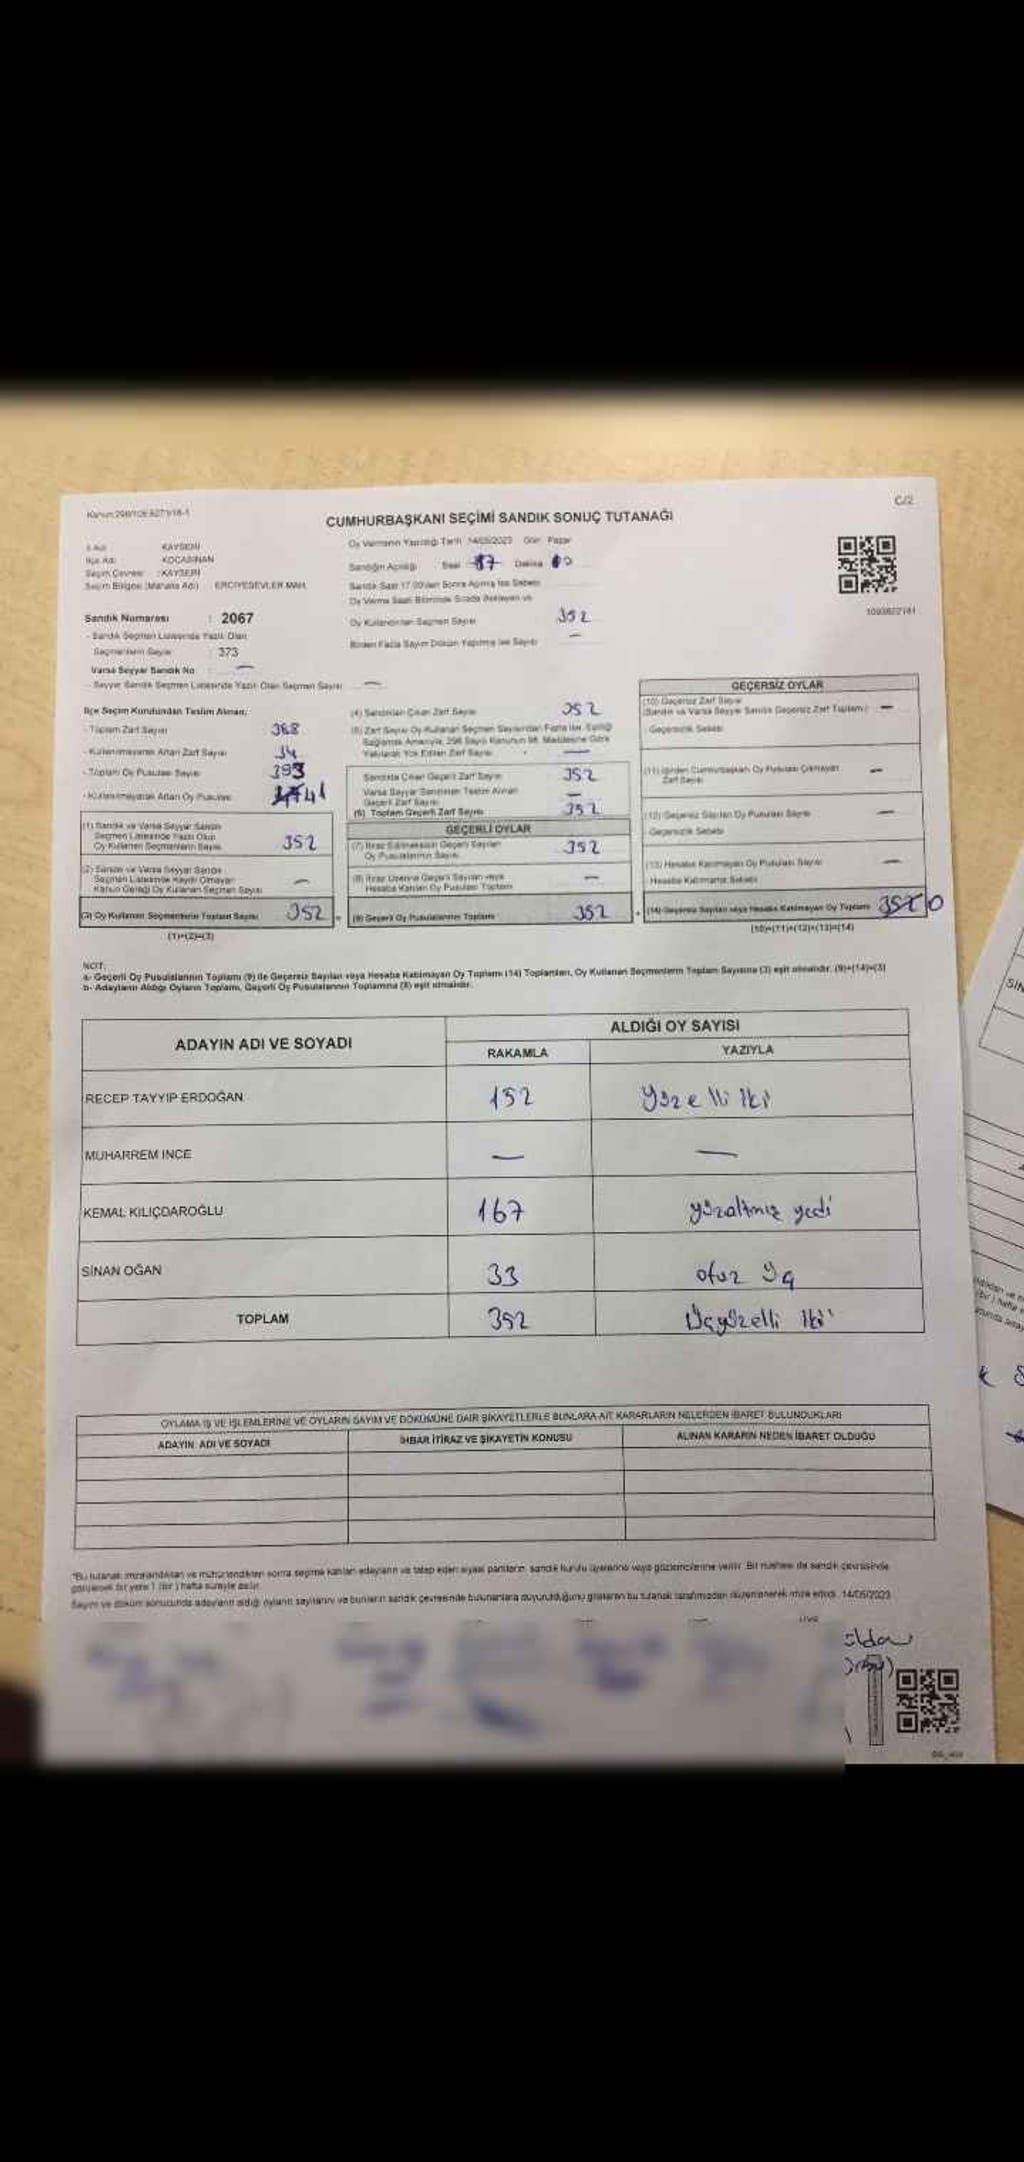 C/2
CUMHURBAŞKANI SEÇİMİ SANDIK SONUÇ TUTANAĞI
İl Adı KAYSERİ
İlçe Adı KOCASİNAN
Seçim Çevresi : KAYSERİ
Seçim Bölgesi (Mahalle Adı) ERCİYESEVLER MAH.
Sandık Numarası : 2067
- Sandık Seçmen Listesinde Yazılı Olan
Seçmenlerin Sayısı : 373
Varsa Seyyar Sandık No : —
- Seyyar Sandık Seçmen Listesinde Yazılı Olan Seçmen Sayısı —
Oy Vermenin Yapıldığı Tarih 14/05/2023 Gün Pazar
Sandığın Açıldığı Saat 17 Dakika
Sandık Saat 17.00'den Sonra Açılmış İse Sebebi
Oy Verme Saati Bitiminde Sırada Bekleyen ve
Oy Kullandırılan Seçmen Sayısı 352
Birden Fazla Sayım Döküm Yapılmış İse Sayısı —
1093622181
İlçe Seçim Kurulundan Teslim Alınan;
- Toplam Zarf Sayısı 388
- Kullanılmayarak Artan Zarf Sayısı 34
- Toplam Oy Pusulası Sayısı 393
- Kullanılmayarak Artan Oy Pusulası 41
(1) Sandık ve Varsa Seyyar Sandık
Seçmen Listesinde Yazılı Olup
Oy Kullanan Seçmenlerin Sayısı 352
(2) Sandık ve Varsa Seyyar Sandık
Seçmen Listesinde Kayıtlı Olmayan
Kanun Gereği Oy Kullanan Seçmen Sayısı —
(3) Oy Kullanan Seçmenlerin Toplam Sayısı 352 =
(1)+(2)=(3)
(4) Sandıktan Çıkan Zarf Sayısı 352
(5) Zarf Sayısı Oy Kullanan Seçmen Sayısından Fazla İse, Eşitliği
Sağlamak Amacıyla, 298 Sayılı Kanunun 98. Maddesine Göre
Yakılarak Yok Edilen Zarf Sayısı —
Sandıkta Çıkan Geçerli Zarf Sayısı 352
Varsa Seyyar Sandıktan Teslim Alınan
Geçerli Zarf Sayısı —
(6) Toplam Geçerli Zarf Sayısı 352
GEÇERLİ OYLAR
(7) İtiraz Edilmeksizin Geçerli Sayılan
Oy Pusulalarının Sayısı 352
(8) İtiraz Üzerine Geçerli Sayılan veya
Hesaba Katılan Oy Pusulası Toplamı —
(9) Geçerli Oy Pusulalarının Toplamı 352 +
GEÇERSİZ OYLAR
(10) Geçersiz Zarf Sayısı
(Sandık ve Varsa Seyyar Sandık Geçersiz Zarf Toplamı) —
Geçersizlik Sebebi
(11) İçinden Cumhurbaşkanı Oy Pusulası Çıkmayan
Zarf Sayısı —
(12) Geçersiz Sayılan Oy Pusulası Sayısı —
Geçersizlik Sebebi
(13) Hesaba Katılmayan Oy Pusulası Sayısı —
Hesaba Katılmama Sebebi
(14) Geçersiz Sayılan veya Hesaba Katılmayan Oy Toplamı 352 0
(10)+(11)+(12)+(13)=(14)
NOT:
a- Geçerli Oy Pusulalarının Toplamı (9) ile Geçersiz Sayılan veya Hesaba Katılmayan Oy Toplamı (14) Toplamları, Oy Kullanan Seçmenlerin Toplam Sayısına (3) eşit olmalıdır. (9)+(14)=(3)
b- Adayların Aldığı Oyların Toplamı, Geçerli Oy Pusulalarının Toplamına (9) eşit olmalıdır.
ADAYIN ADI VE SOYADI ALDIĞI OY SAYISI
RAKAMLA YAZIYLA
RECEP TAYYİP ERDOĞAN 152 Yüzelli iki
MUHARREM İNCE — —
KEMAL KILIÇDAROĞLU 167 yüzaltmış yedi
SİNAN OĞAN 33 otuz üç
TOPLAM 352 Üçyüzelli iki
OYLAMA İŞ VE İŞLEMLERİNE VE OYLARIN SAYIM VE DÖKÜMÜNE DAİR ŞİKAYETLERLE BUNLARA AİT KARARLARIN NELERDEN İBARET BULUNDUKLARI
ADAYIN ADI VE SOYADI İHBAR İTİRAZ VE ŞİKAYETİN KONUSU ALINAN KARARIN NEDEN İBARET OLDUĞU
*Bu tutanak imzalandıktan ve mühürlendikten sonra seçime katılan adayların ve talep eden siyasi partilerin sandık kurulu üyelerine veya gözlemcilerine verilir. Bir nüshası da sandık çevresinde
görülecek bir yere 1 (bir) hafta süreyle asılır.
Sayım ve döküm sonucunda adayların aldığı oyların sayılarını ve bunların sandık çevresinde bulunanlara duyurulduğunu gösteren bu tutanak tarafımızdan düzenlenerek imza edildi. 14/05/2023